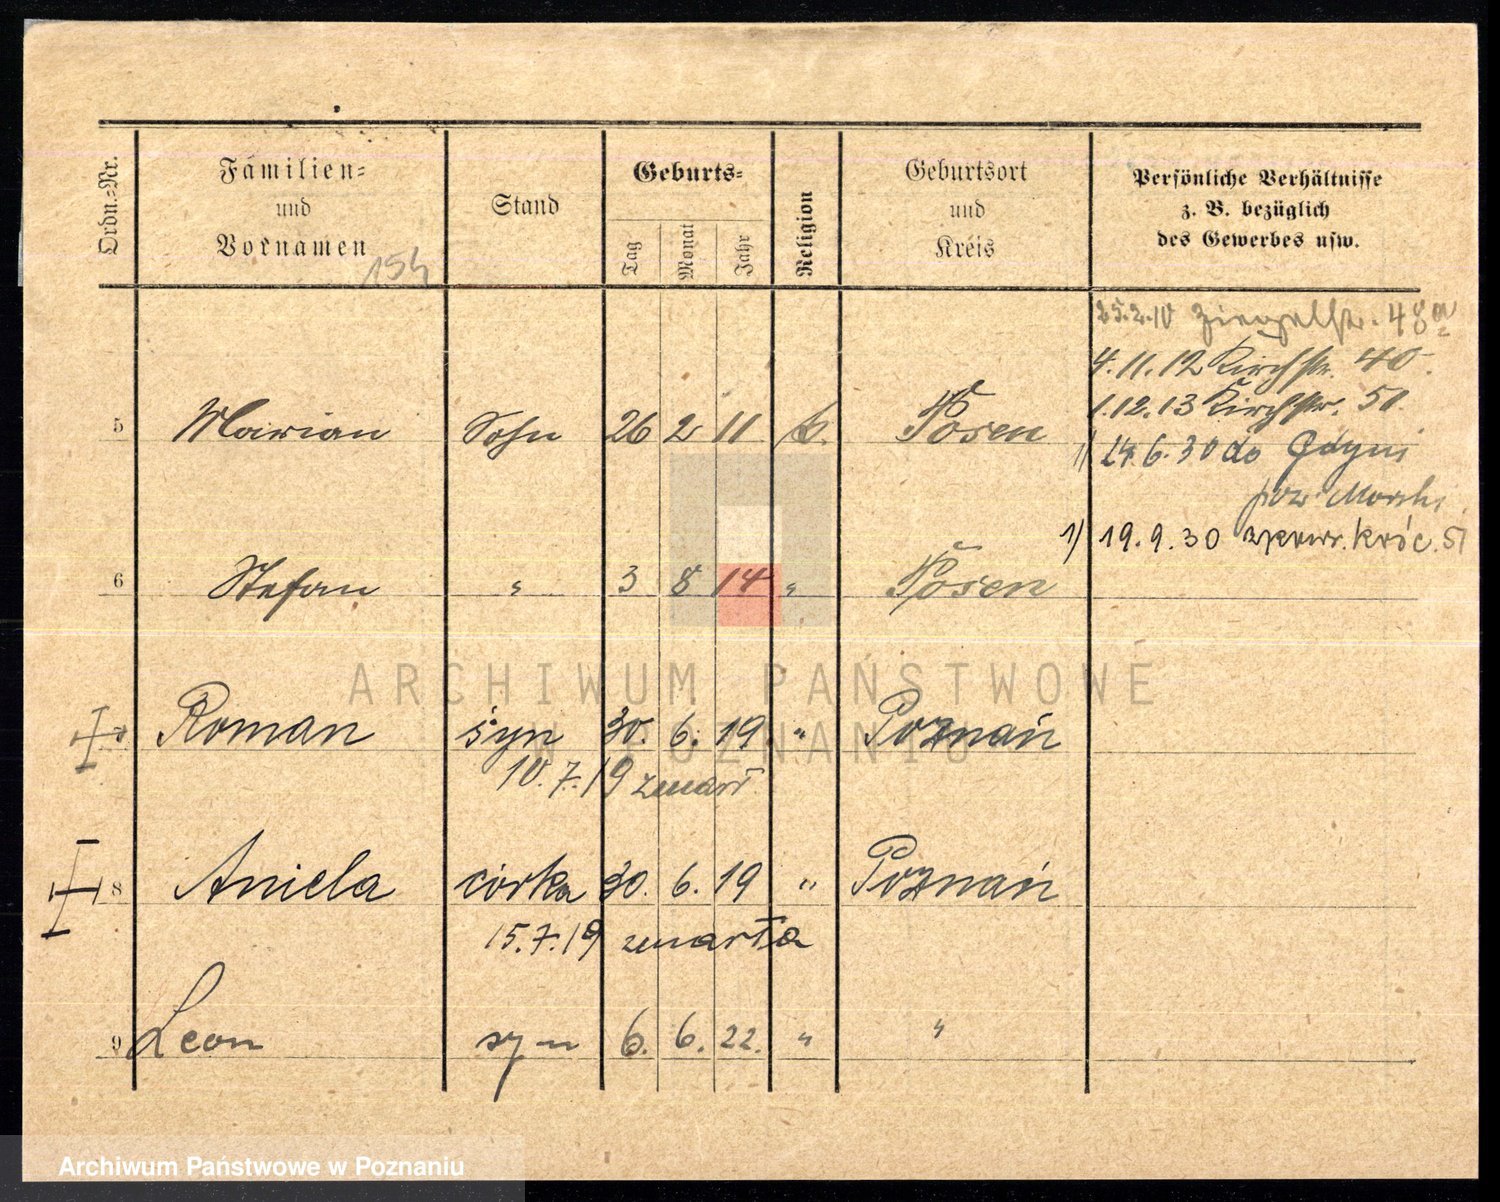 Ordn.-Nr.
Familien-
und
Vornamen
154
Stand
Geburts-
Tag
Monat
Jahr
Religion
Geburtsort
und
Kreis
Persönliche Verhältnisse
z. B. bezüglich
des Gewerbes usw.
25.2.10 Ziegelstr. 48a
4.11.12 Kirchstr. 40.
1.12.13 Kirchstr. 51.
5 Marian Sohn 26 2 11 k. Posen
1) 24.6.30 do Gdyni
pow. Morski
1) 19.9.30 króc. 51
6 Stefan " 3 8 14 " Posen
ARCHIWUM PAŃSTWOWE
W POZNANIU
Roman syn 30. 6. 19 " Poznań
10.7.19 zmarł
8 Aniela córka 30. 6. 19 " Poznań
15.7.19 zmarła
9 Leon syn 6. 6. 22. " "
Archiwum Państwowe w Poznaniu